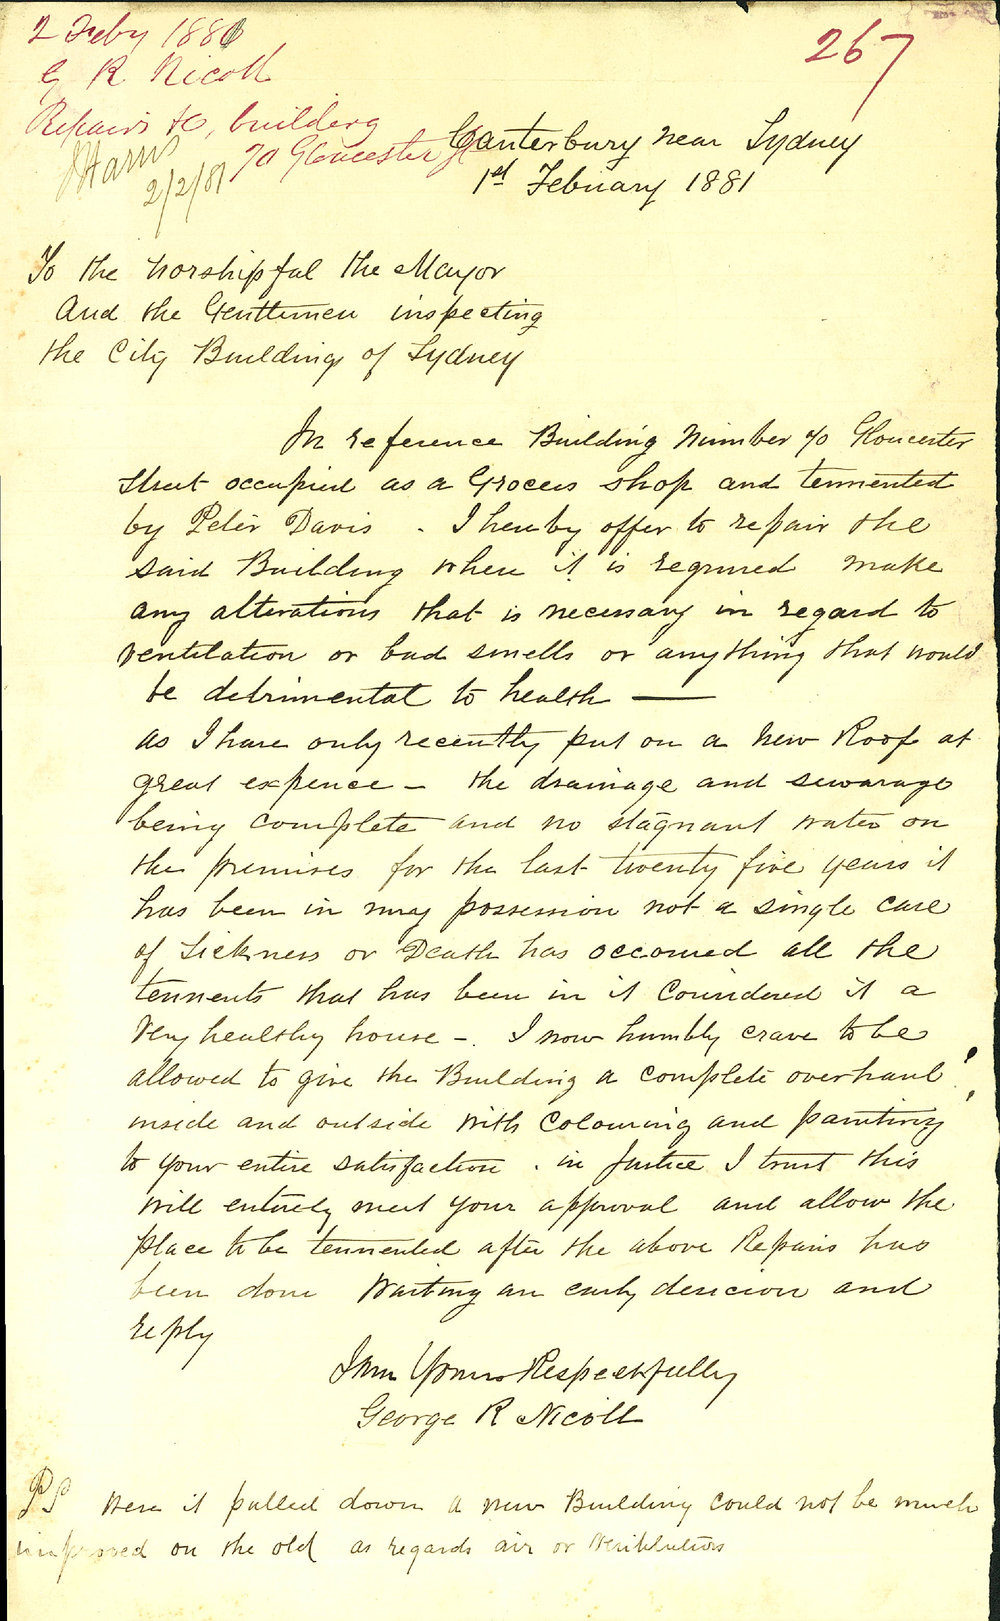 2 Feby 1881
G R Nicoll
Repairs to, building
70 Gloucester St
267
JHarris
2/2/81
Canterbury near Sydney
1st February 1881
To the worshipful the Mayor
And the Gentlemen inspecting
the City Buildings of Sydney
In reference Building Number 70 Gloucester
Street occupied as a Grocers shop and tennented
by Peter Davis . I hereby offer to repair the
said Building where it is required make
any alterations that is necessary in regard to
ventilation or bad smells or anything that would
be detrimental to health —
as I have only recently put on a New Roof at
great expence – the drainage and sewarage
being complete and no stagnant water on
the premises for the last twenty five years it
has been in my possession not a single case
of Sickness or Death has occorred all the
tennents that has been in it Considered it a
very healthy house –. I now humbly crave to be
allowed to give the Building a complete overhaul
inside and outside with Colouring and painting
to your entire satisfaction . in Justice I trust this
will entirely meet your approval and allow the
place to be tennented after the above Repairs has
been done Waiting an early desicion and
reply
I am Yours Respectfully
George R Nicoll
PS Were it pulled down a new Building could not be much
improved on the old as regards air or Ventilation